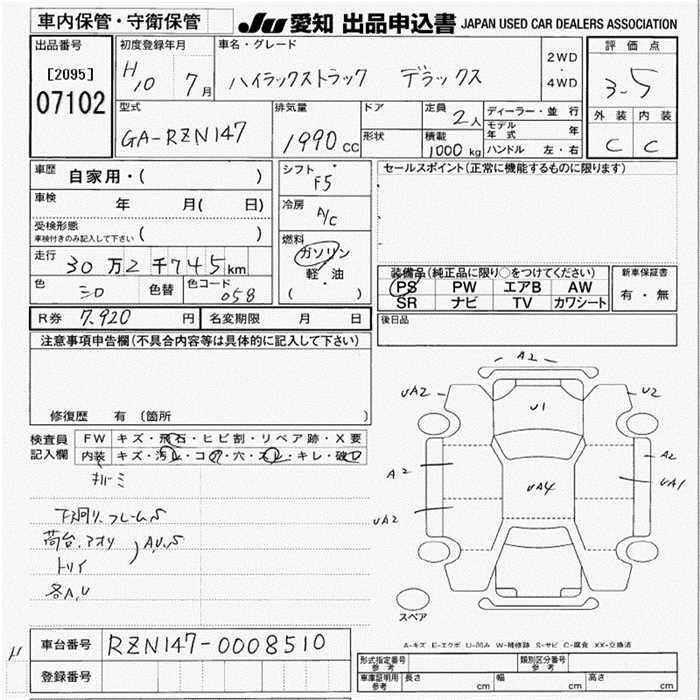 車内保管・守衛保管
JU 愛知 出品申込書 JAPAN USED CAR DEALERS ASSOCIATION
出品番号
[2095]
07102
初度登録年月
H10 7月
車名・グレード
ハイラックストラック デラックス
2WD
・
4WD
評価点
3.5
外装 内装
C C
型式
GA-RZN147
排気量
1990 cc
ドア
形状
定員 2人
積載 1000 kg
ディーラー・並行
モデル年式 年
ハンドル 左・右
車歴 自家用・( )
車検 年 月( 日)
受検形態
車検付きのみ記入して下さい ( )
走行 30万2千745km
色 シロ 色替 色コード 058
シフト
F5
冷房
A/C
燃料
ガソリン
・
軽・油
( )
セールスポイント(正常に機能するものに限ります)
装備品(純正品に限り○をつけてください)
PS PW エアB AW
SR ナビ TV カワシート
新車保証書
有・無
R券 7,920 円 名変期限 月 日
後日品
注意事項申告欄(不具合内容等は具体的に記入して下さい)
修復歴 有 (箇所 )
検査員記入欄
FW キズ・飛石・ヒビ割・リペア跡・X要
内装 キズ・汚レ・コゲ・穴・スレ・キレ・破レ
下廻り、フレームS
荷台、アオリ
トリイ
A,U,S
各A,U
A2
UA2
U1
U2
A2
A2
UA4
UA1
UA2
スペア
A-キズ E-エクボ U-凹み W-補修跡 S-サビ C-腐食 XX-交換済
車台番号 RZN147-0008510
登録番号
形式指定番号 参考
類別区分番号 参考
車庫証明用 参考 長さ cm 幅 cm 高さ cm